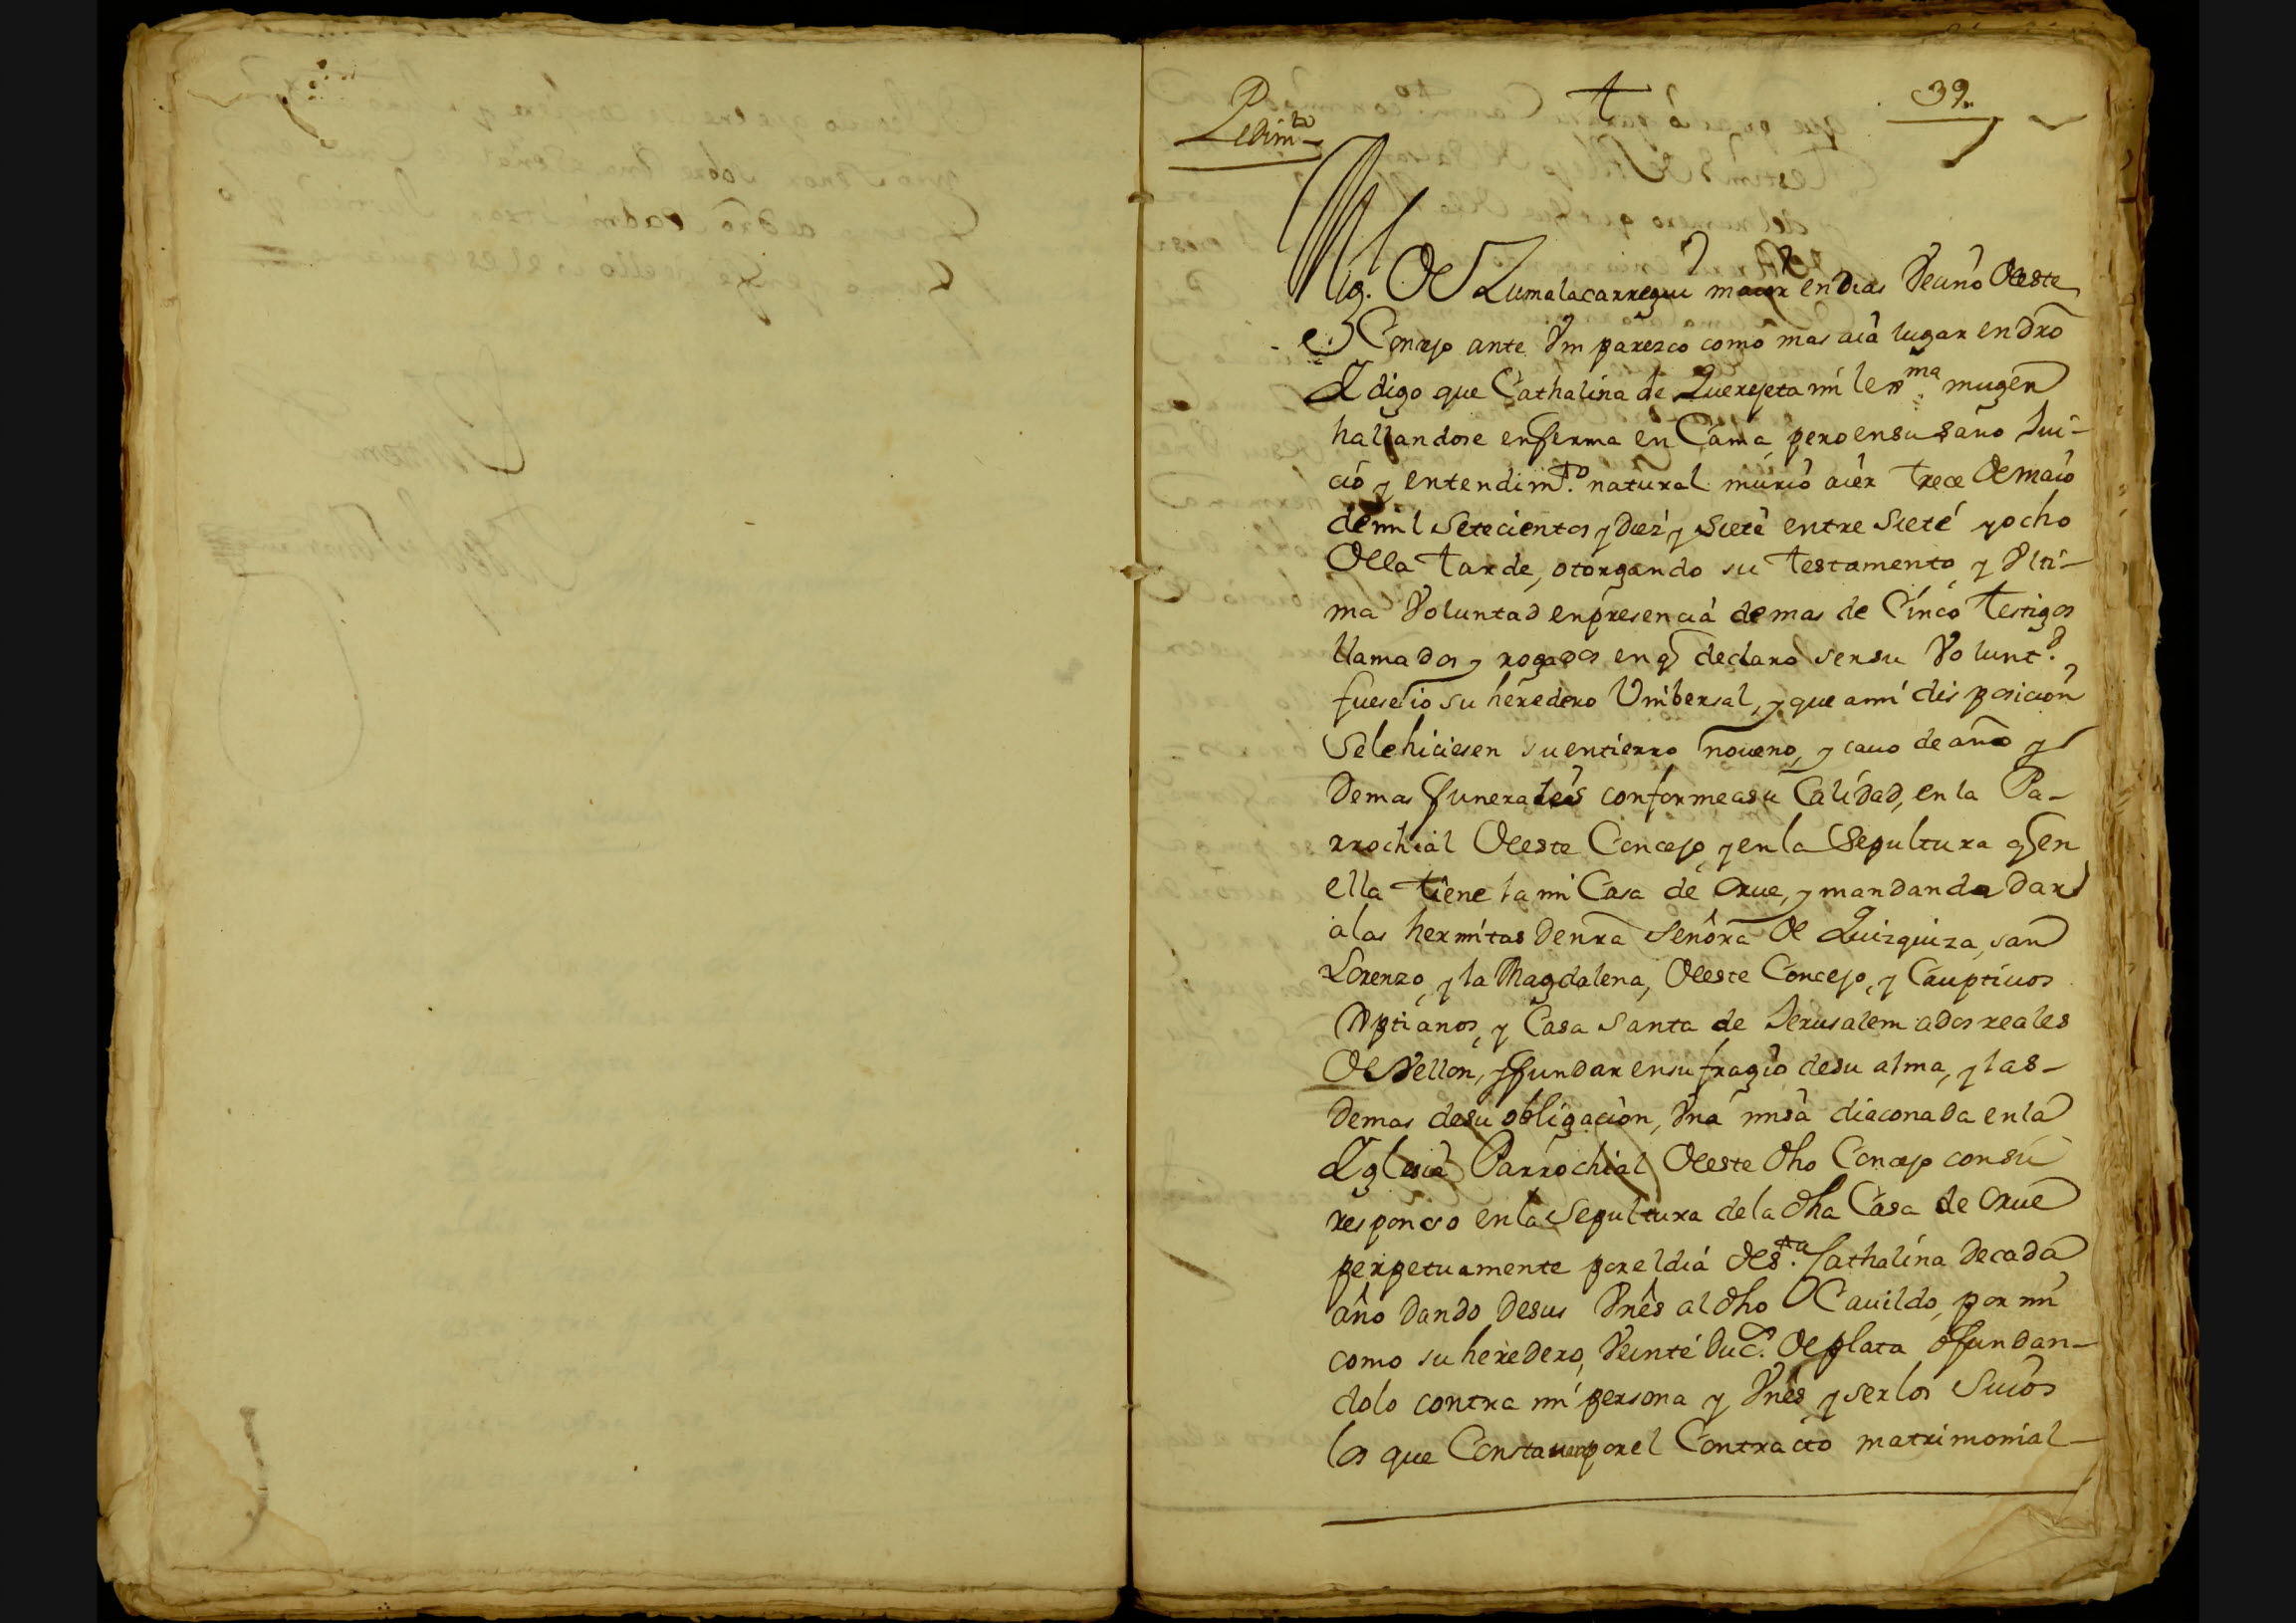 Pedimto
39
Mig. de Zumalacarregui maior en dias Vecino deeste
Concejo ante Vm parezco como mas aia lugar en dro
Y digo que Cathalina de Querejeta mi lexma muger
hallandose enferma en Cama pero en su sano Jui-
cio y entendimto. natural murio aier trece de maio
de mil Setecientos y Diez y Siete entre Siete y ocho
de la tarde, otorgando su testamento y Vlti-
ma Voluntad en presencia de mas de Cinco testigos
llamados y rogados en q declaro ser su Volunt.d
fuese io su heredero Vnibersal, y que a mi disposicion
Se le hiciesen su entierro noueno, y cauo de año y
Demas funerales conforme a su Calidad, en la Pa-
rrochial deeste Concejo y en la Sepultura q en
ella tiene la mi Casa de Orue, y mandando dar
a las hermitas de nra Señora de Quizquiza, san
Lorenzo, y la Magdalena, deeste Concejo, y Cauptiuos
Xptianos, y Casa Santa de Jerusalem a dos reales
de Vellon, y fundar en sufragio de su alma, y las
Demas de su obligacion, Vna misa diaconada en la
Yglesia Parrochial deeste dho Concejo con su
responso en la Sepultura de la dha Casa de Orue
perpetuamente por el dia de Sta. Cathalina de cada
año dando de sus Vnes al dho Cauildo, por mi
como su heredero, Veinte Duc.s de plata o fundan-
dolo contra mi persona y Vnes y ser los Suios
los que Constauan por el Contracto matrimonial